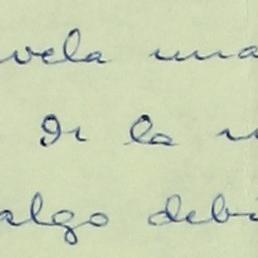 vela una
De la
algo debi